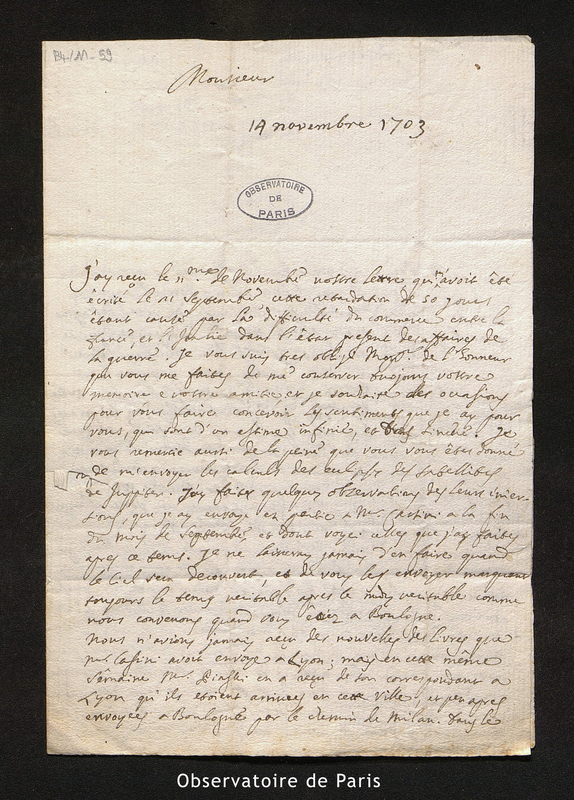 B4/M-59
Monsieur
14 novembre 1703
OBSERVATOIRE
DE
PARIS
J'ay reçu le 11.me de Novembre vostre lettre qui avoit été
écrite le 21 Septembre cette retardation de 50 jours
étant causée par la difficulté du commerce entre la
france, et l'Italie dans l'état present des affaires de
la guerre. Je vous suis tres obligé Monsr. de l'honneur
que vous me faites de me conserver toujours vostre
memoire e vostre amitie et je souhaite des ocasions
pour vous faire concevoir les sentiments que je ay pour
vous, qui sont d'un estime infinie, et sincere. Je
vous remercie aussi de la peine que vous vous étes donné
de m'envoyer les calculs des eclipses des satellites
de Juppiter. J'ay faite quelques observations des leurs
que je ay envoyé en partie a Mr. Cassini a la fin
du mois de septembre, et dont voycy celles que j'ay faites
apres ce tems. Je ne laisseray jamais d'en faire quand
le Ciel sera decouvert, et de vous les envoyer marquant
toujours le tems veritable apres le midy veritable comme
nous convenons quand vous étiez a Boulogne.
Nous n'avions jamais reçu des nouvelles des livres que
mr. Cassini avoit envoyé a Lyon; mais en cette même
semaine Mr. en a reçu de son correspondant a
Lyon qu'ils etoient arrivees en cette ville, et peu apres
envoyées a Boulogne par le chemin de Milan. Dans le
Observatoire de Paris